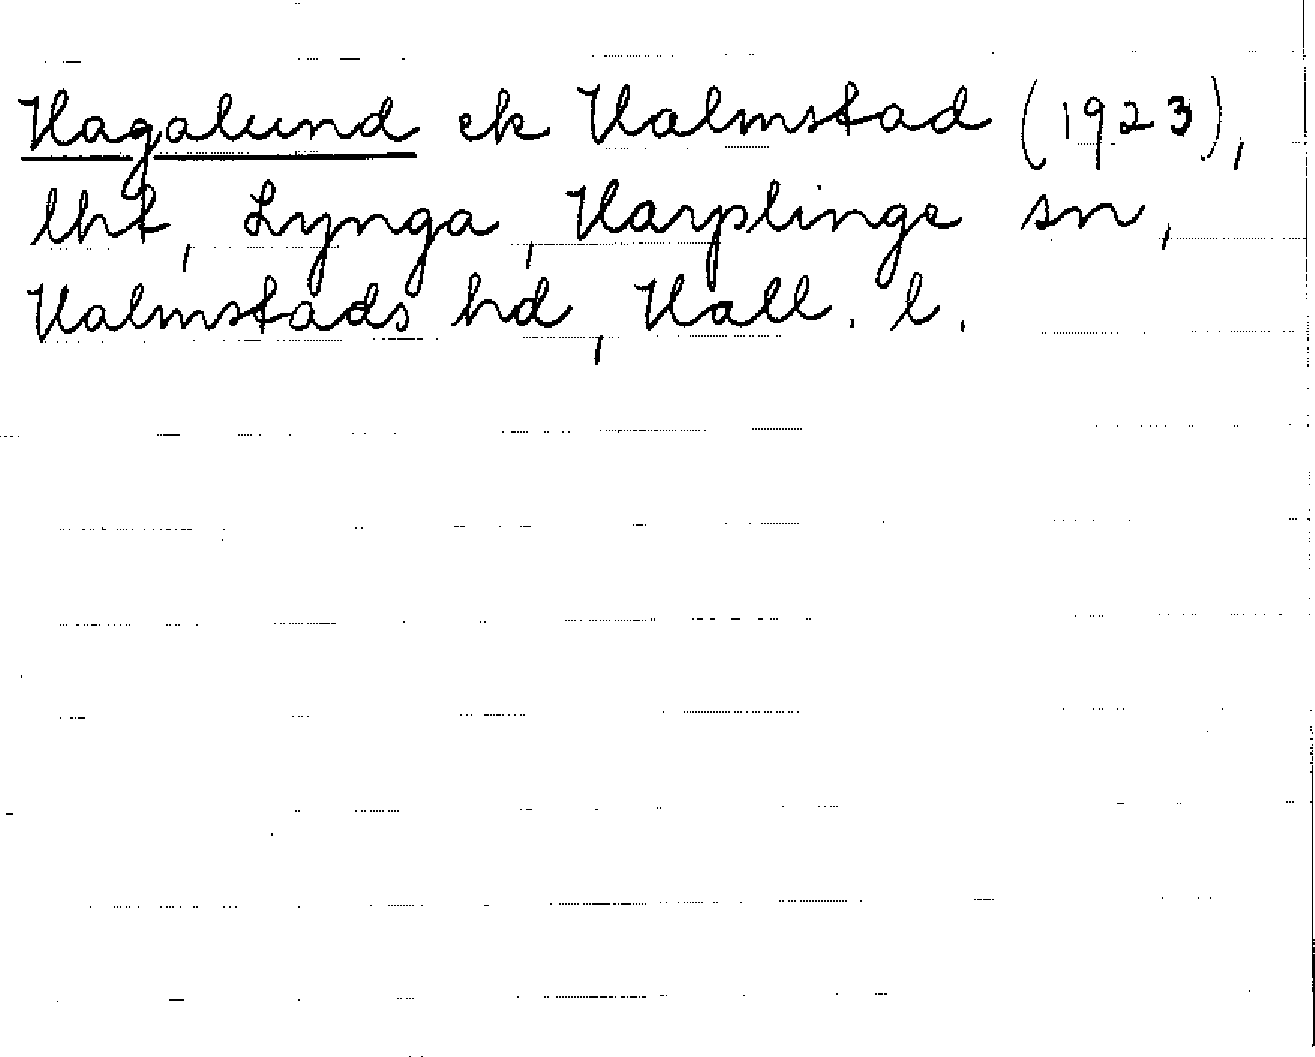 Hagalund ek Halmstad (1923),
lht, Lynga, Harplinge sn,
Halmstads hd, Hall. l.